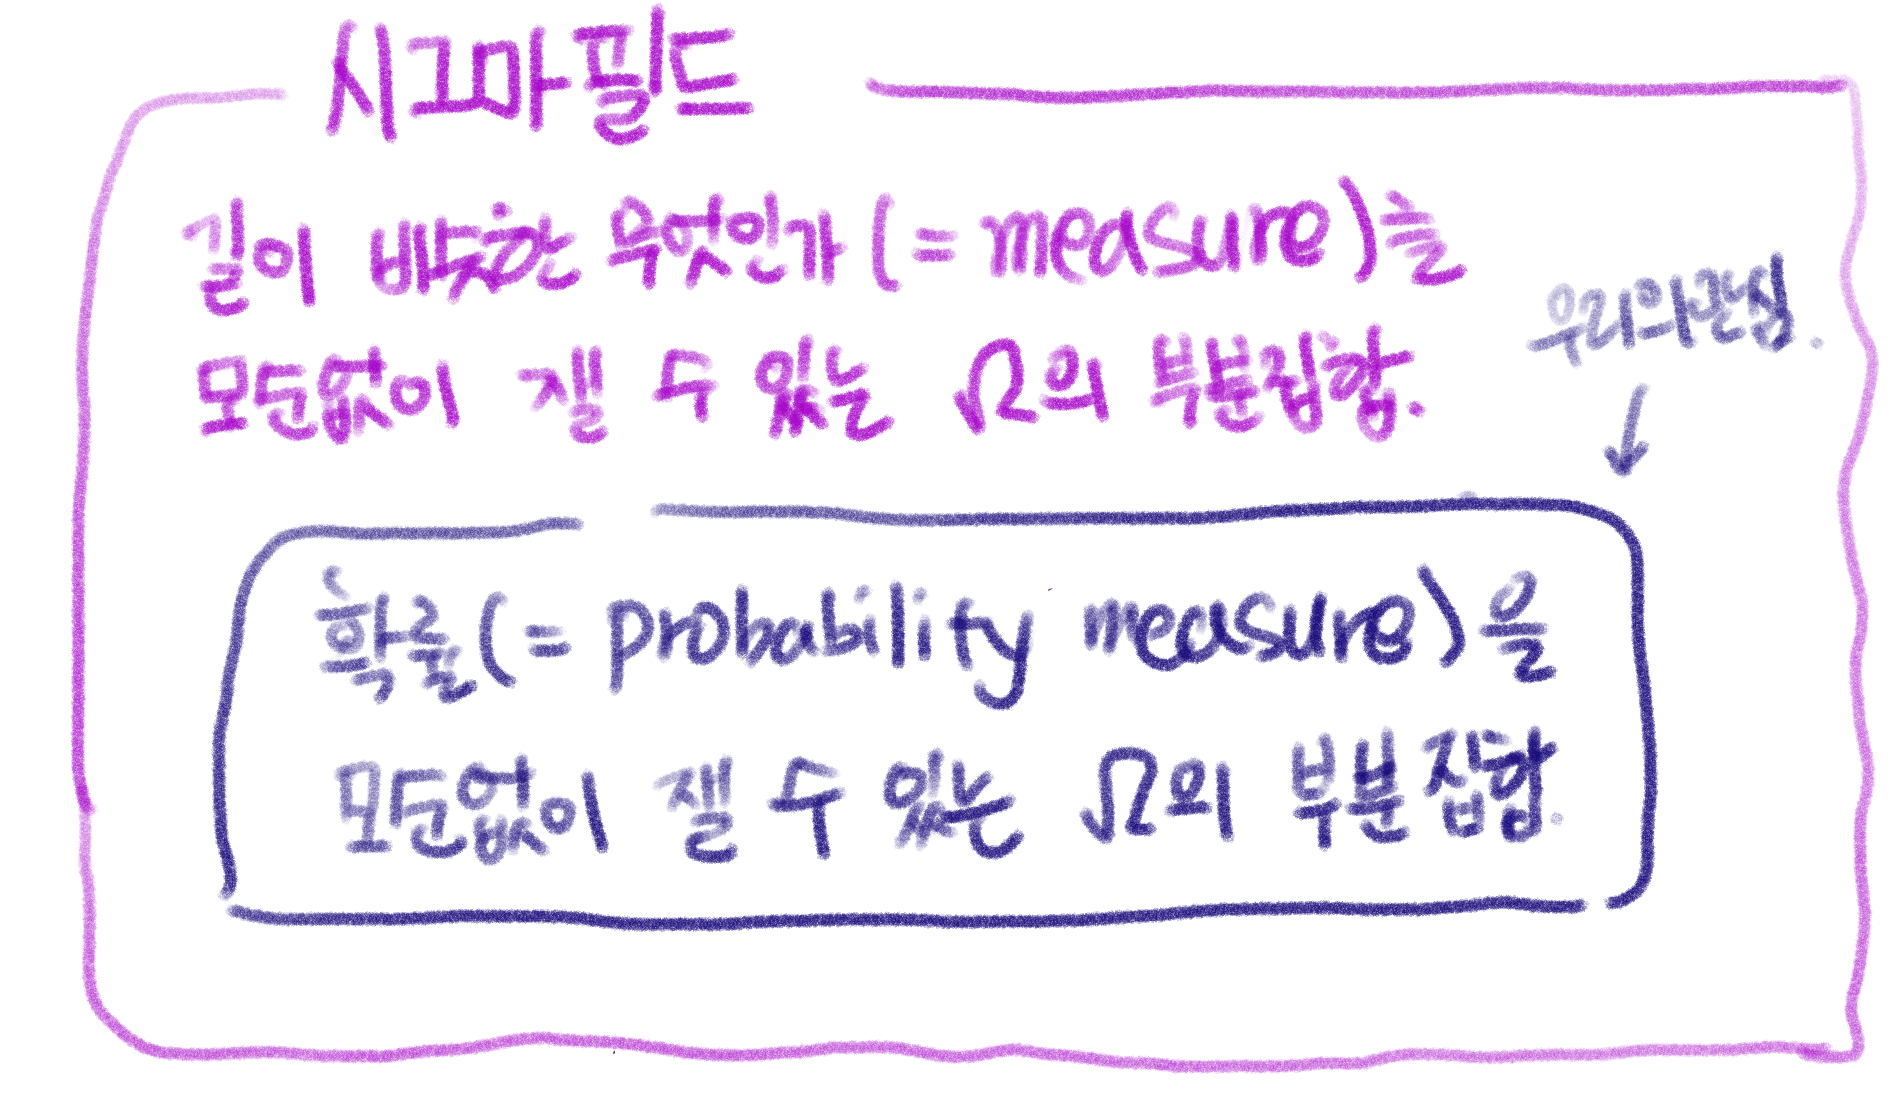 시그마필드
길이 비슷한 무엇인가 (= measure)를
모순없이 잴 수 있는 Ω의 부분집합.
우리의관심.
↓
확률(= probability measure)을
모순없이 잴 수 있는 Ω의 부분집합.